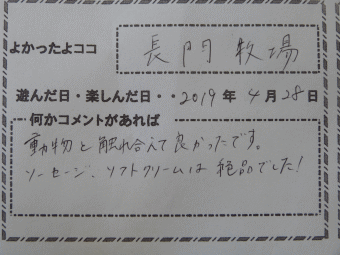 よかったよココ 長門牧場
遊んだ日・楽しんだ日・・2019年4月28日
何かコメントがあれば
動物と触れ合えて良かったです。
ソーセージ、ソフトクリームは絶品でした!